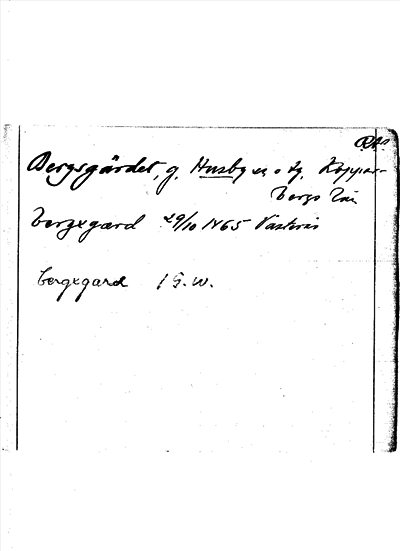 RAp
Bergsgärdet, g. Husby sn o tg. Koppar-
bergs län
bergxgærd 29/10 1465 Västerås
bergxgard 1 G.W.